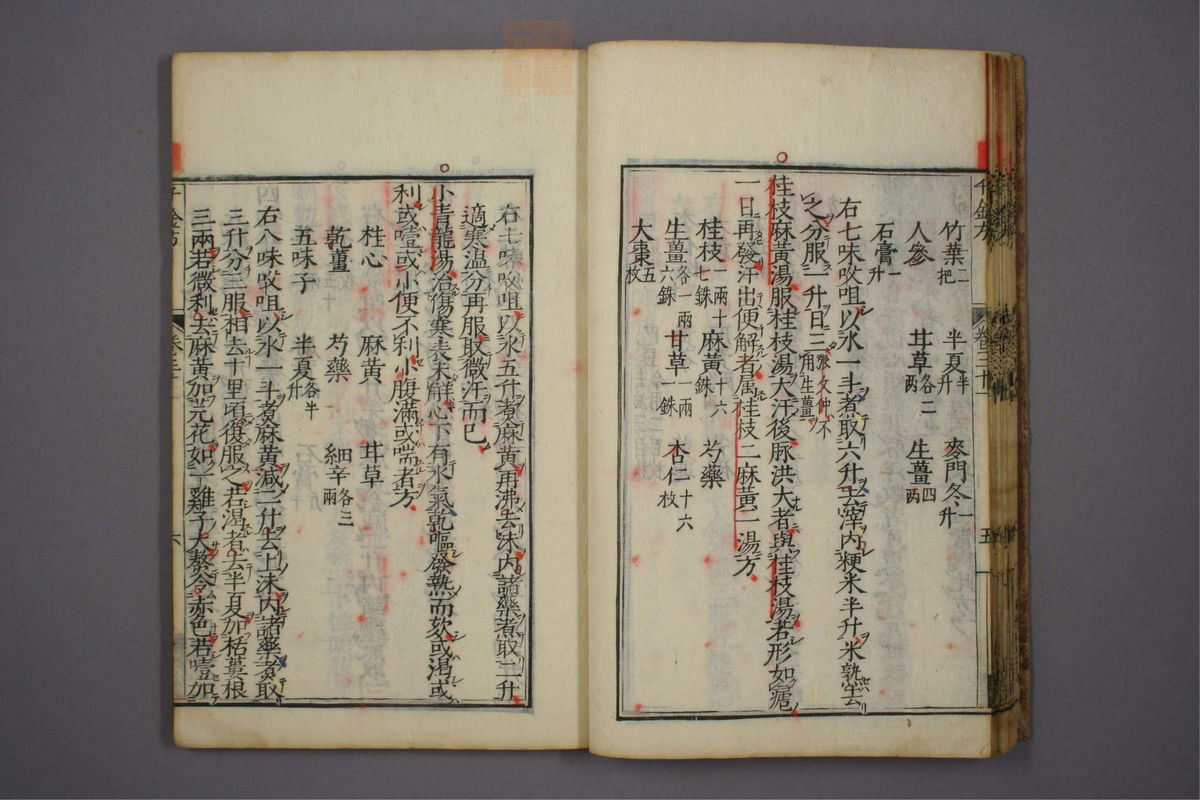 竹葉二把 半夏半升 麥門冬一升
人參 甘草各二兩 生薑四兩
石膏一升
右七味㕮咀以水一斗煮取六升去滓內粳米半升米熟去
之分服一升日三張文仲不用生薑
桂枝麻黃湯服桂枝湯大汗後脉洪大者與桂枝湯若形如瘧
一日再發汗出便解者属桂枝二麻黃一湯方
桂枝一兩十七銖 麻黃十六銖 芍藥
生薑各一兩六銖 甘草一兩一銖 杏仁十六枚
大棗五枚
五
右七味㕮咀以水五升煮麻黃再沸去沫內諸藥煮取二升
適寒温分再服取微汗而已
小青龍湯治傷寒表未解心下有水氣乾嘔發熱而欬或渴或
利或噎或小便不利小腹滿或喘者方
桂心 麻黃 甘草
乾薑 芍藥 細辛各三兩
五味子 半夏各半升
右八味㕮咀以水一斗煮麻黃減二升去上沫內諸藥煮取
三升分三服相去十里頃復服之若渴者去半夏加栝蔞根
三兩若微利去麻黃加芫花如一雞子大熬令赤色若噎加
六